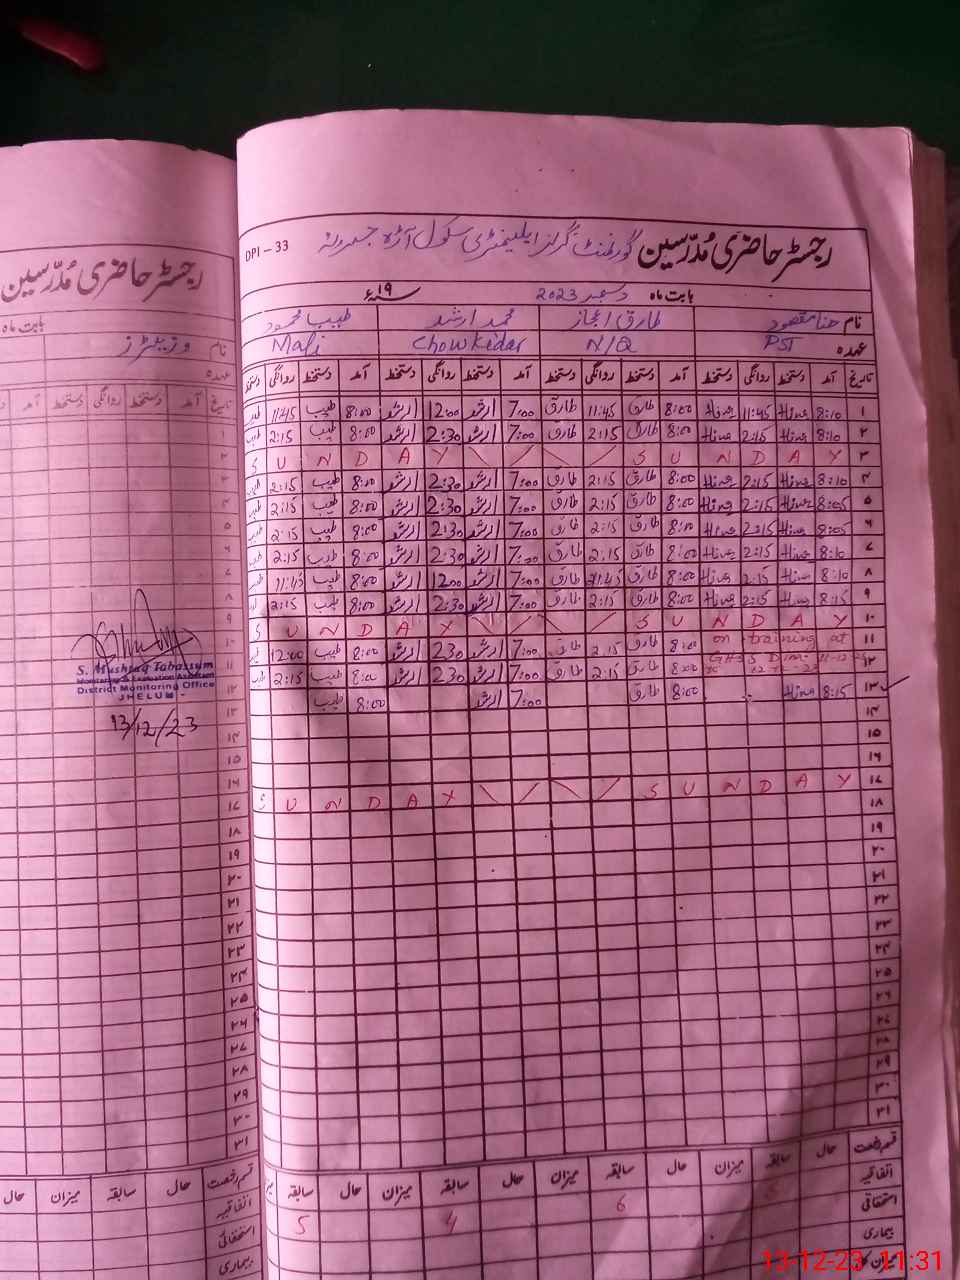 DPI – 33
رجسٹر حاضری مُدرّسین گورنمنٹ گرلز ایلیمنٹری سکول آڑہ
بابت ماہ دسمبر 2023 ۱۹ء
نام حنا مقصود طارق اعجاز محمد ارشد طیب محمود
عہدہ PST N/Q Chowkidar Mali
تاریخ آمد دستخط روانگی دستخط آمد دستخط روانگی دستخط آمد دستخط روانگی دستخط آمد دستخط روانگی دستخط
۱ 8:10 Hina 11:45 Hina 8:00 طارق 11:45 طارق 7:00 ارشد 12:00 ارشد 8:00 طیب 11:45 طیب
۲ 8:10 Hina 2:15 Hina 8:00 طارق 2:15 طارق 7:00 ارشد 2:30 ارشد 8:00 طیب 2:15 طیب
۳ S U N D A Y S U N D A Y
۴ 8:10 Hina 2:15 Hina 8:00 طارق 2:15 طارق 7:00 ارشد 2:30 ارشد 8:00 طیب 2:15 طیب
۵ 8:05 Hina 2:15 Hina 8:00 طارق 2:15 طارق 7:00 ارشد 2:30 ارشد 8:00 طیب 2:15 طیب
۶ 8:05 Hina 2:15 Hina 8:00 طارق 2:15 طارق 7:00 ارشد 2:30 ارشد 8:00 طیب 2:15 طیب
۷ 8:10 Hina 2:15 Hina 8:00 طارق 2:15 طارق 7:00 ارشد 2:30 ارشد 8:00 طیب 2:15 طیب
۸ 8:10 Hina 2:15 Hina 8:00 طارق 11:45 طارق 7:00 ارشد 12:00 ارشد 8:00 طیب 11:45 طیب
۹ 8:15 Hina 2:15 Hina 8:00 طارق 2:15 طارق 7:00 ارشد 2:30 ارشد 8:00 طیب 2:15 طیب
۱۰ S U N D A Y S U N D A Y
۱۱ on training at 8:00 طارق 2:15 طارق 7:00 ارشد 2:30 ارشد 8:00 طیب 12:00
۱۲ GHSS 8:00 طارق 2:15 طارق 7:00 ارشد 2:30 ارشد 8:00 طیب 2:15 طیب
۱۳ 8:15 Hina 8:00 طارق 7:00 ارشد 8:00 طیب
۱۴
۱۵
۱۶
۱۷ S U N D A Y S U N D A Y
۱۸
۱۹
۲۰
۲۱
۲۲
۲۳
۲۴
۲۵
۲۶
۲۷
۲۸
۲۹
۳۰
۳۱
قسم رخصت حال سابقہ میزان حال سابقہ میزان حال سابقہ میزان حال سابقہ
اتفاقیہ 6 4 5
استحقاقی
بیماری
رجسٹر حاضری مُدرّسین
بابت ماہ
نام وزیٹرز
عہدہ
تاریخ آمد دستخط روانگی دستخط آمد
۱
۲
۳
۴
۵
۶
۷
۸
۹
۱۰
۱۱
۱۲
۱۳
۱۴
۱۵
۱۶
۱۷
۱۸
۱۹
۲۰
۲۱
۲۲
۲۳
۲۴
۲۵
۲۶
۲۷
۲۸
۲۹
۳۰
۳۱
S. Mushtaq Tabassum
Monitoring & Evaluation Assistant
District Monitoring Office
JHELUM
13/12/23
قسم رخصت حال سابقہ میزان حال
اتفاقیہ
استحقاقی
بیماری
13-12-23 11:31